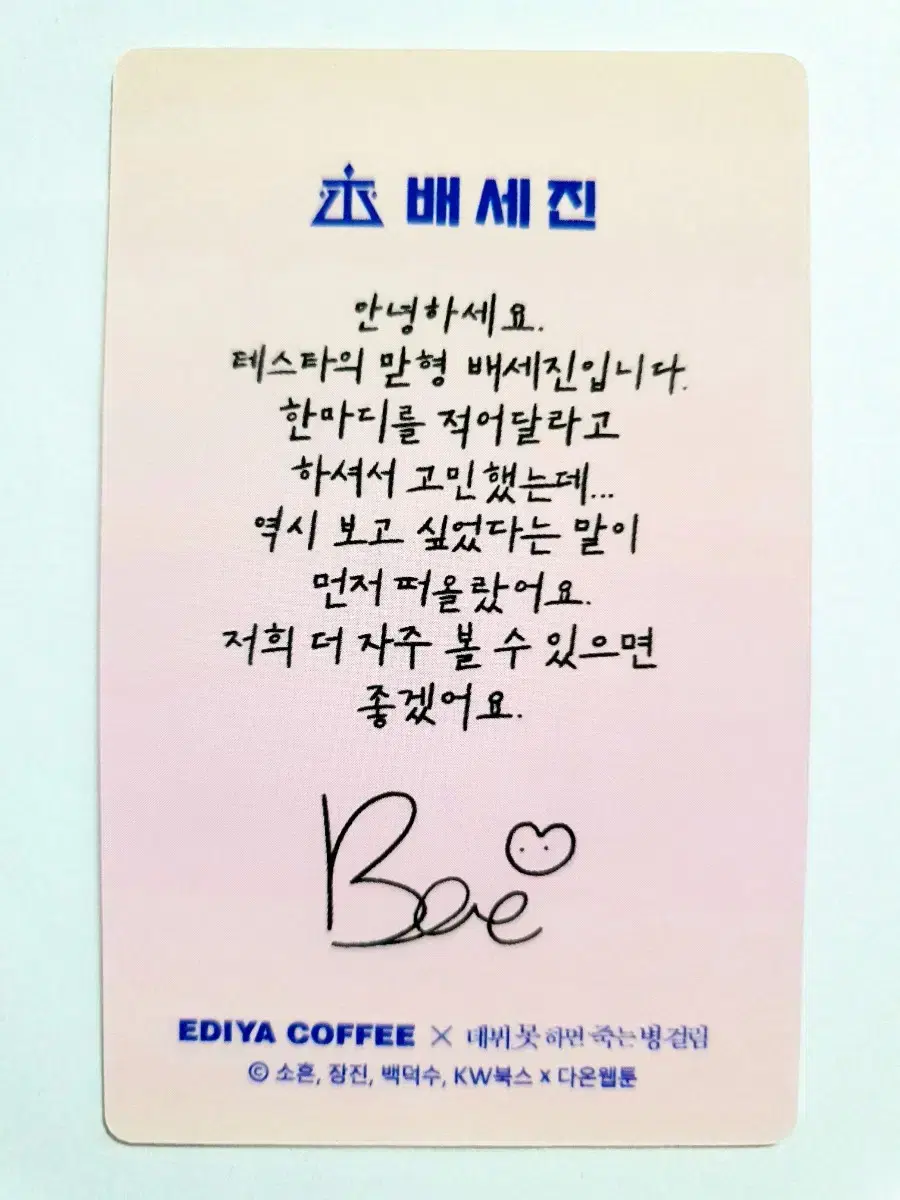 배세진
안녕하세요.
테스타의 맏형 배세진입니다.
한마디를 적어달라고
하셔서 고민했는데...
역시 보고 싶었다는 말이
먼저 떠올랐어요.
저희 더 자주 볼 수 있으면
좋겠어요.
Bae
EDIYA COFFEE × 데뷔 못 하면 죽는 병 걸림
© 소흔, 장진, 백덕수, KW북스 x 다온웹툰